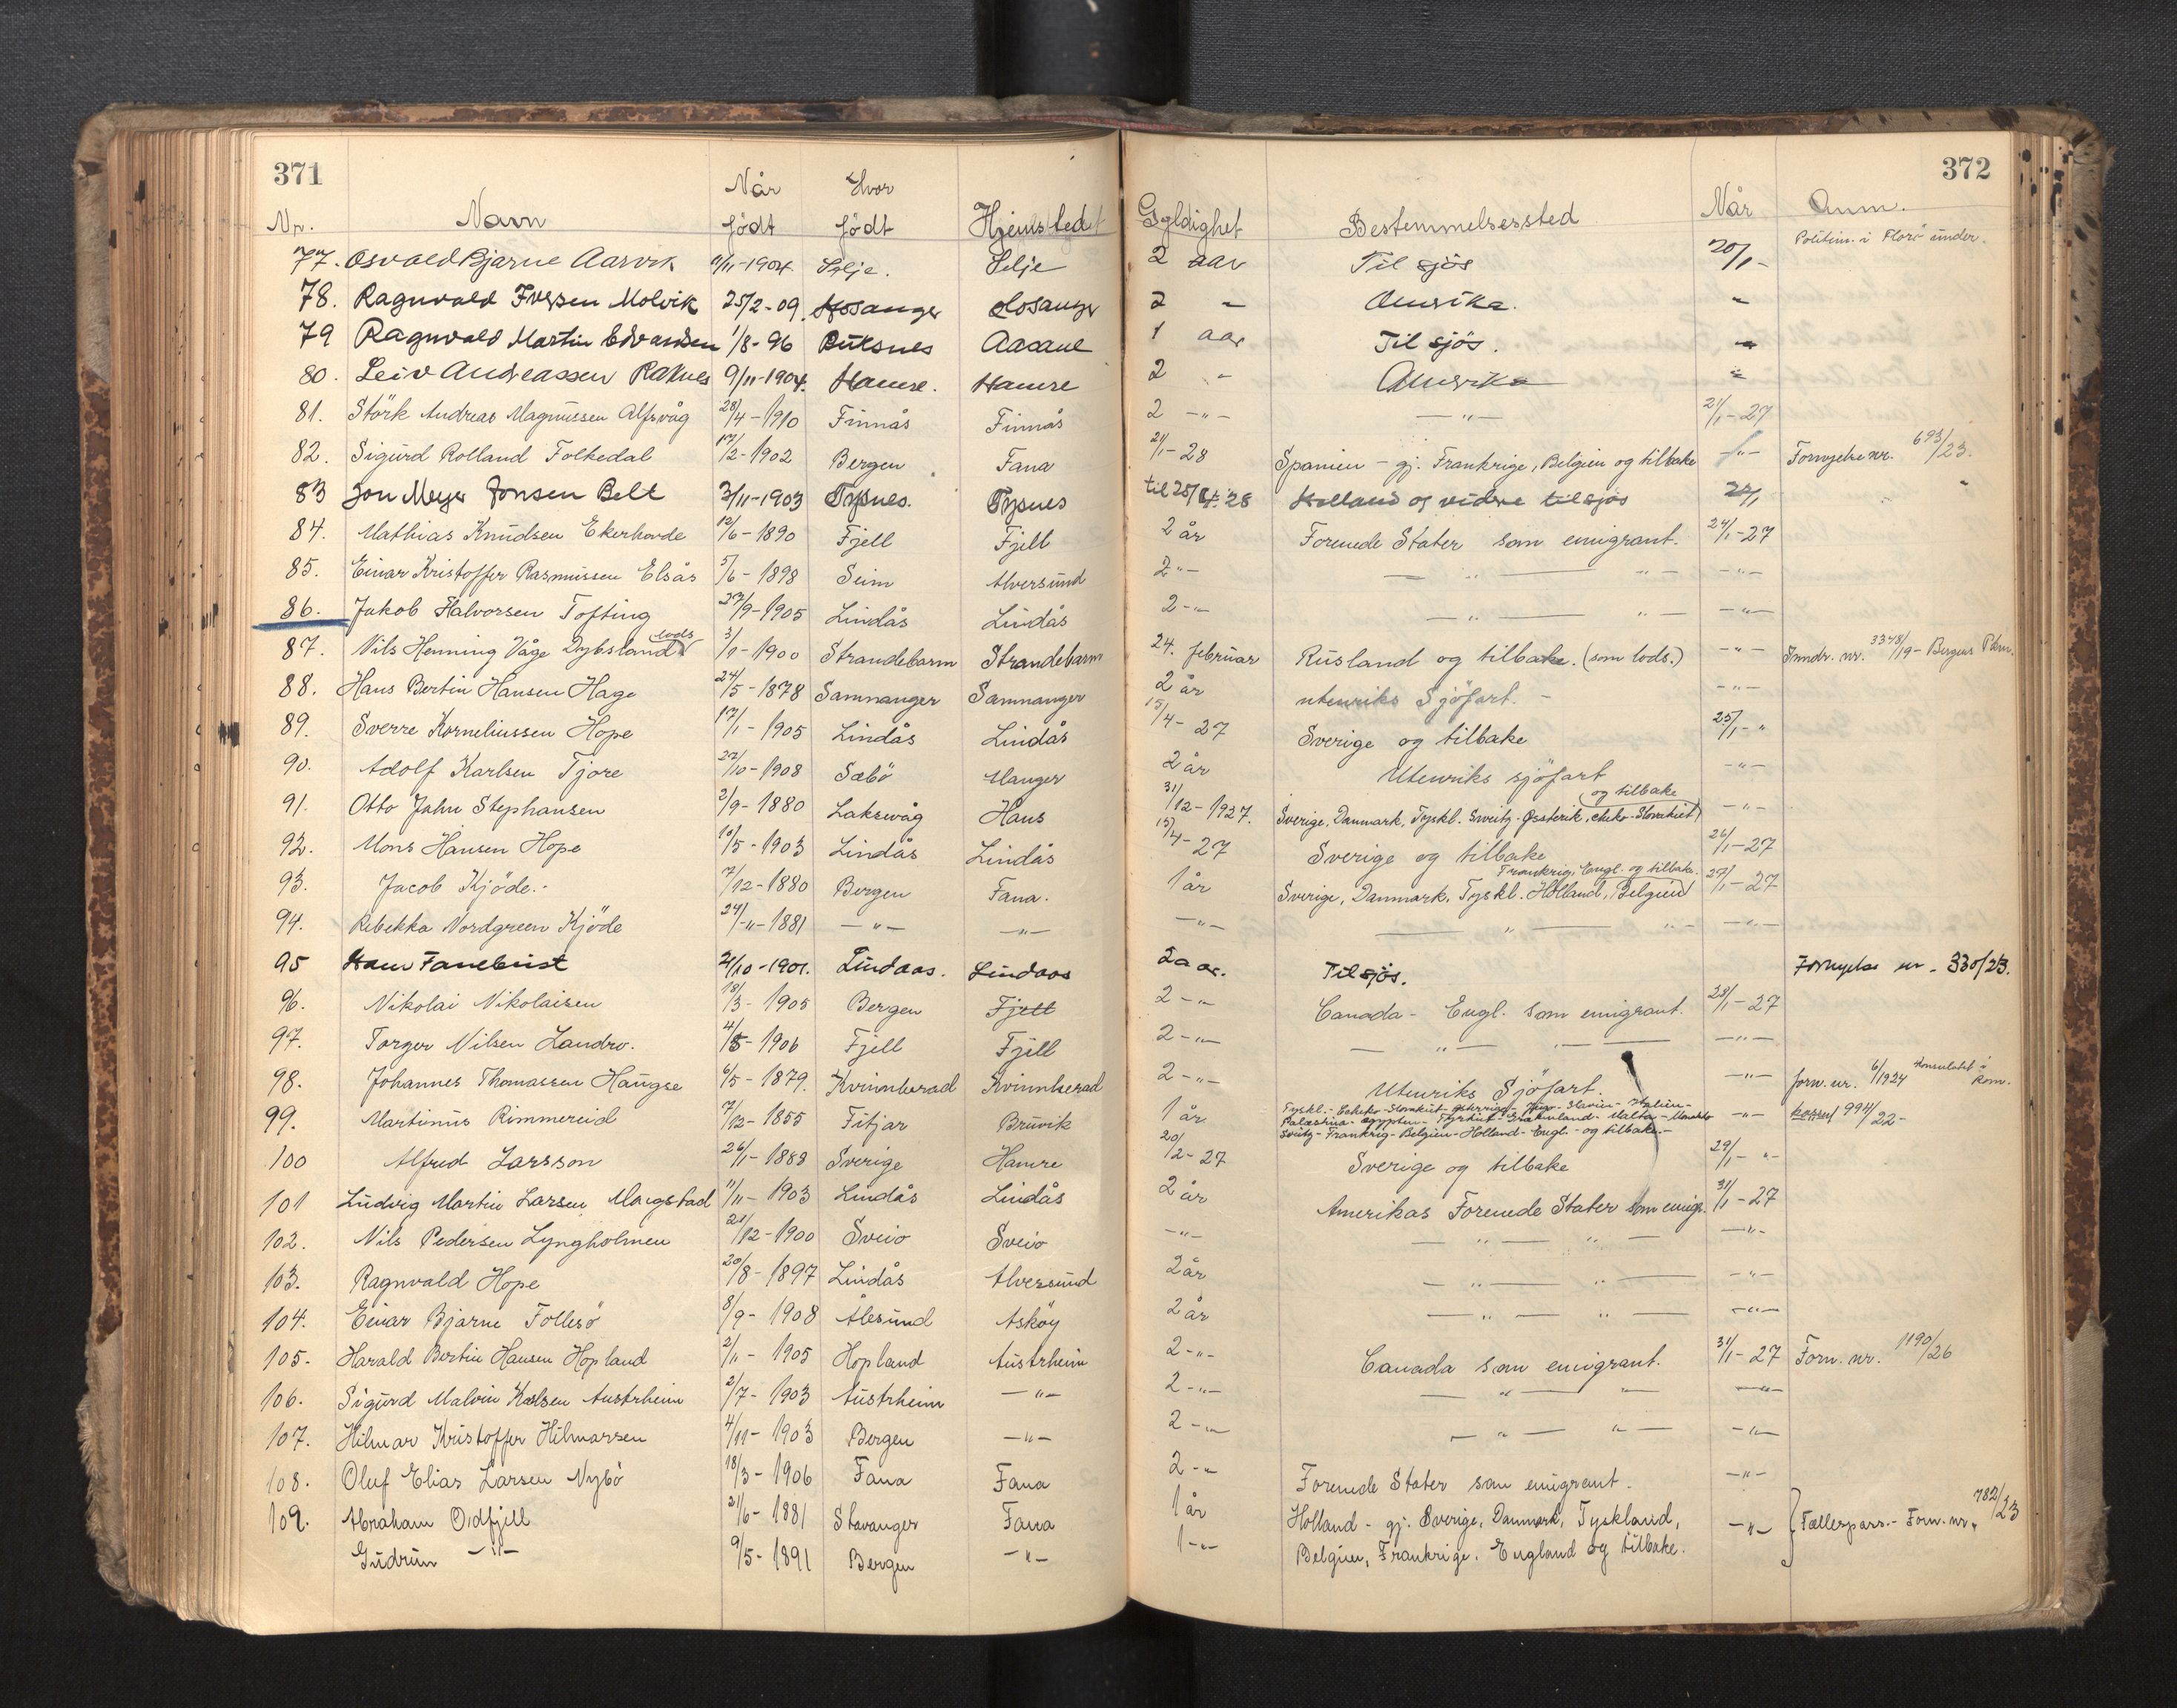 371
372
Nr. Navn Når födt Hvor födt Hjemsted Gyldighet Bestemmelsessted Når Anm.
77. Osvald Bjarne Aarvik 11/11-1904. Selje. Selje 2 aar Til sjös 20/1- Politim. i Florö under.
78. Ragnvald Iversen Molvik 25/2-09. Hosanger Hosanger 2 - Amerika. "
79 Ragnvald Martin Edvardsen 1/8-96 Buksnes Aasane 1 aar Til sjös. "
80. Leiv Andreassen Raknes 9/11-1904. Hamre. Hamre 2 - Amerika "
81. Störk Andreas Magnussen Alfsvåg 28/4-1910 Finnås Finnås 2 -"- -"- 21/1-27
82. Sigurd Rolland Folkedal 17/2-1902 Bergen Fana 21/1-28 Spanien - gj. Frankrige, Belgien og tilbake -"- Fornyelse nr. 693/23.
83 Jon Meyer Jonsen Belt 3/11-1903 Tysnes. Tysnes til 28 Holland og videre til sjös 22/1
84. Mathias Knudsen Ekerhovde 12/6-1890 Fjell Fjell 2 år Forenede Stater som emigrant. 24/1-27
85. Einar Kristoffer Rasmussen Elsås 5/6-1898 Seim Alversund 2 -"- -"- "- -"-
86. Jakob Halvorsen Tofting 27/9-1905 Lindås Lindås 2 -"- -"- "- -"-
87. Nils Henning Våge Dybsland lods 3/1-1900 Strandebarm Strandebarm 24. februar Rusland og tilbake. (som lods.) -"- Inndr. nr. 3378/19 - Bergens Pkm.
88. Hans Bertin Hansen Hage 24/5-1878 Samnanger Samnanger 2 år utenriks Sjöfart. - -"-
89. Sverre Korneliussen Hope 17/1-1905 Lindås Lindås 15/4-27 Sverige og tilbake 25/1-"
90. Adolf Karlsen Tjore 27/10-1908 Sæbö Manger 2 år Utenriks sjöfart -"-
og tilbake
91. Otto John Stephansen 2/9-1880 Laksevåg Haus 31/12-1927. Sverige, Danmark, Tyskl. Sveitz-Østerik, cheko-Slovakiet -"-
92. Mons Hansen Hope 10/5-1903 Lindås Lindås 15/4-27 Sverige og tilbake 26/1-27
Frankrig, Engl. og tilbake.
93. Jacob Kjöde.- 7/12-1880 Bergen Fana. 1 år Sverige, Danmark, Tyskl. Holland, Belgien 27/1-27
94. Rebekka Nordgreen Kjöde 24/-"-1881 -"- -"- -"- -"- "- -"-
95 Hans Fanebust 21/10-1901. Lindaas. Lindaas 2 aar. Til sjös. Fornyelse nr. 330/23.
96. Nikolai Nikolaisen 18/3-1905 Bergen Fjell 2 -"- Canada - Engl. som emigrant. 28/1-27
97. Torger Nilsen Landro. 4/5-1906 Fjell Fjell 2 -"- -"- "- -"-
98. Johannes Thomassen Haugse 6/5-1879. Kvinnherad Kvinnherad 2 -"- Utenriks Sjöfart. -"- forn. nr. 6/1924 Konsulatet i Rom.
99. Martinus Rimmereid 7/12-1855 Fitjar Bruvik 1 år Tyskl.- Tcheko-Slovakiet - Østerrige - Jugo-Slavien - Italien -
Palæstina - Ægypten - Tyrkiet - Grækenland - Malta - Monako -"- 994/22-
Sveitz - Frankrig - Belgien - Holland - Engl. - og tilbake. -
100 Alfred Larsson 26/1-1888 Sverige Hamre 20/2-27 Sverige og tilbake 29/1-"-
101 Ludvig Martin Larsen Mangstad 11/11-1903 Lindås Lindås 2 år Amerikas Forenede Stater som emigr. 31/1-27
102. Nils Pedersen Lyngholmen 21/12-1900 Sveio Sveio -"- -"- "- -"-
103. Ragnvald Hope 20/8-1897 Lindås Alversund 2 år -"- "- -"-
104. Einar Bjarne Follesö 8/9-1908 Ålesund Asköy 2 år -"- "- -"-
105. Harald Bertin Hansen Hopland 2/11-1905 Hopland Austrheim 2 -"- Canada som emigrant. 31/1-27 Forn. nr. 1190/26
106. Sigurd Malvin Karlsen Austrheim 2/7-1903 Austrheim -"- 2 -"- -"- "- -"-
107. Hilmar Kristoffer Hilmarsen 4/11-1903 Bergen -"- 2 -"- -"- "- -"-
108. Oluf Elias Larsen Nybö 18/3-1906 Fana Fana 2 -"- Forenede Stater som emigrant. -"-
109. Abraham Odfjell 21/6-1881 Stavanger Fana 1 år Holland - gj. Sverige, Danmark, Tyskland, -"- Fællespass.- Forn. nr. 782/23
Gudrun -"- 9/5-1891 Bergen -"- 1 -"- Belgien, Frankrige. England og tilbake.